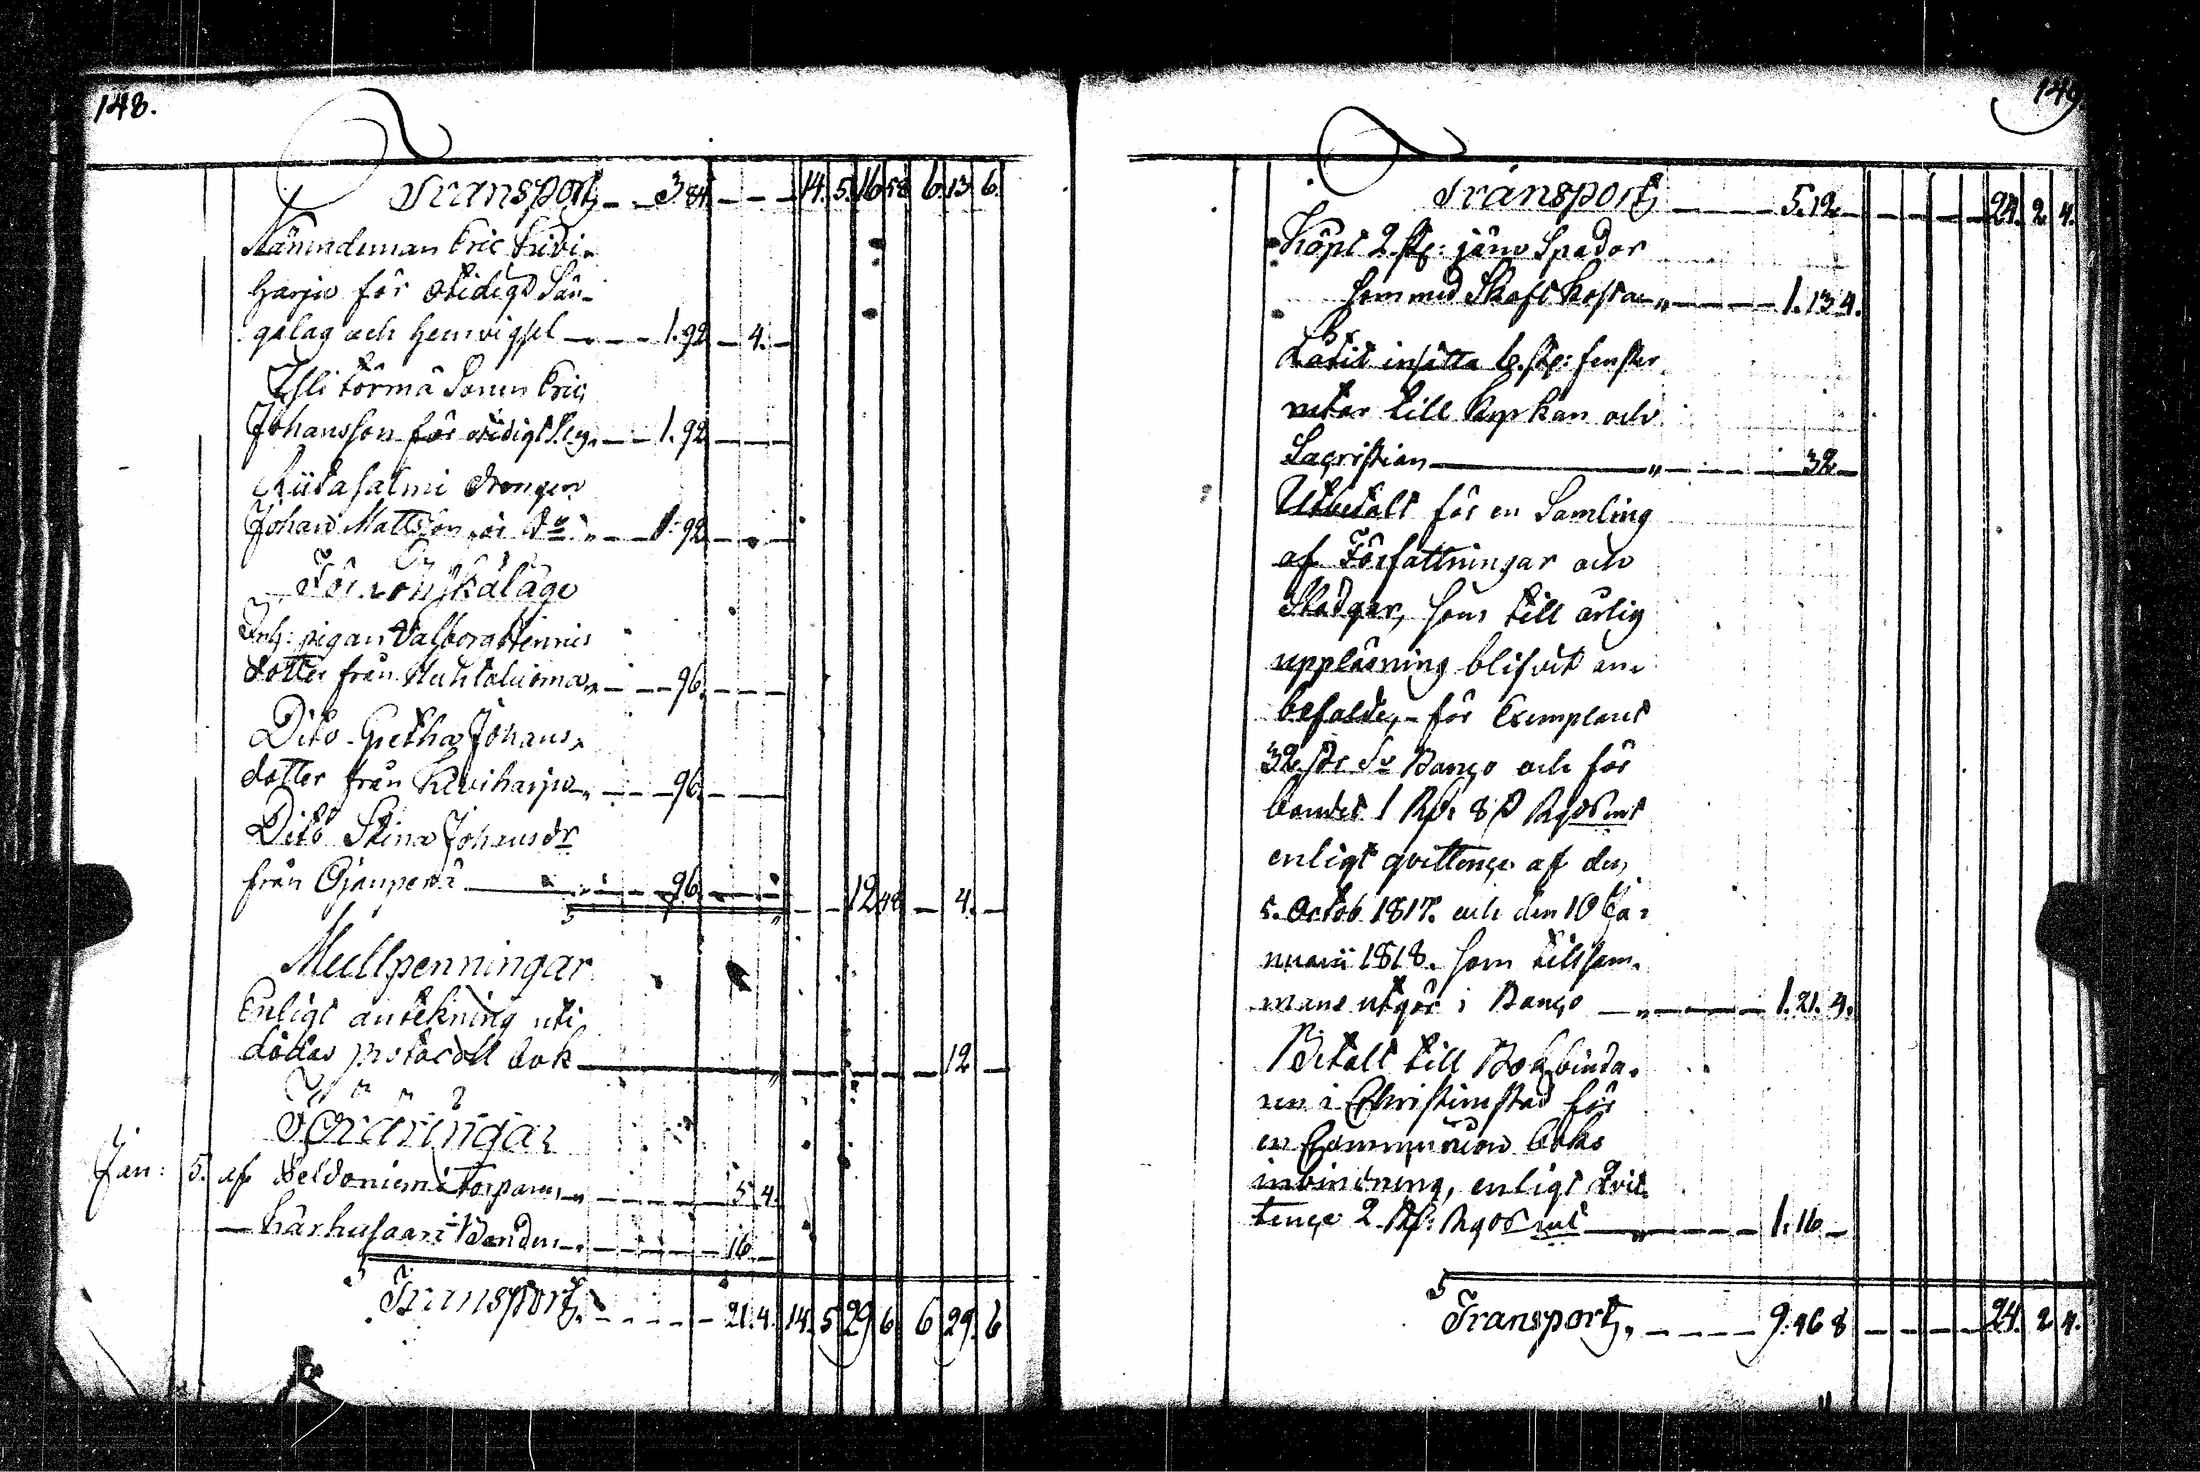 148.
Transport, 3 84. 14. 5. 16 58 6. 13. 6.
Nämndeman Eric Kivi-
harju för otidigt Sän-
galag och hemvigsel 1. 92 4.
Ylli törmä Sonen Eric
Johansson för otidigt Säng. 1. 92
drengen
Johan Mattsson för do 1. 92
För Lönskaläge
Inh: pigan Valborg Hennis
dotter från 96.
Dito Gretha Johans-
dotter från Kiviharju 96.
Dito Stina Johansdr
från Ojanperä 96. 12 48 4.
Mullpenningar
Enligt antekning uti
dödas protocoll bok 12
Föräringar
Jan: 5. af Peldoniemi Torparen 5. 4.
Kärhusaari Bonden 16
Transport, 21. 4. 14. 5 29 6 6 29. 6
149.
Transport, 5. 12 24. 2 4.
Köpt 2. st: järn Spador
som med Skaft kosta 1. 13 4.
Låtit insätta 6. st: fenster
rutor till Kyrkan och
Sacristian 32
Utbetalt för en Samling
af Författningar och
Stadgar, som till årlig
uppläsning blifvit an-
befalde, för Exemplaret
32 sk: So Banco och för
bandet 1 Rd: 8 s Rgds mt
enligt qvittence af den
5. Octob 1817. och den 10 Ja-
nuarii 1818. som tillsam-
mans utgör i Banco 1. 21. 4.
Betalt till Bokbinda-
ren i Christinestad för
en Communion boks
inbindning, enligt Qvit-
tence 2 Rd: Rgds mt 1. 16
Transport, 9. 46 8 24. 2 4.